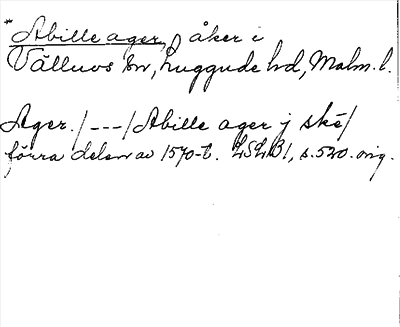 * Abille ager, åker i
Välluvs sn, Luggude hd, Malm. l.
Ager. /---/ Abille ager j skē/
förra delen av 1570-t. LSLB1, s. 520. orig.